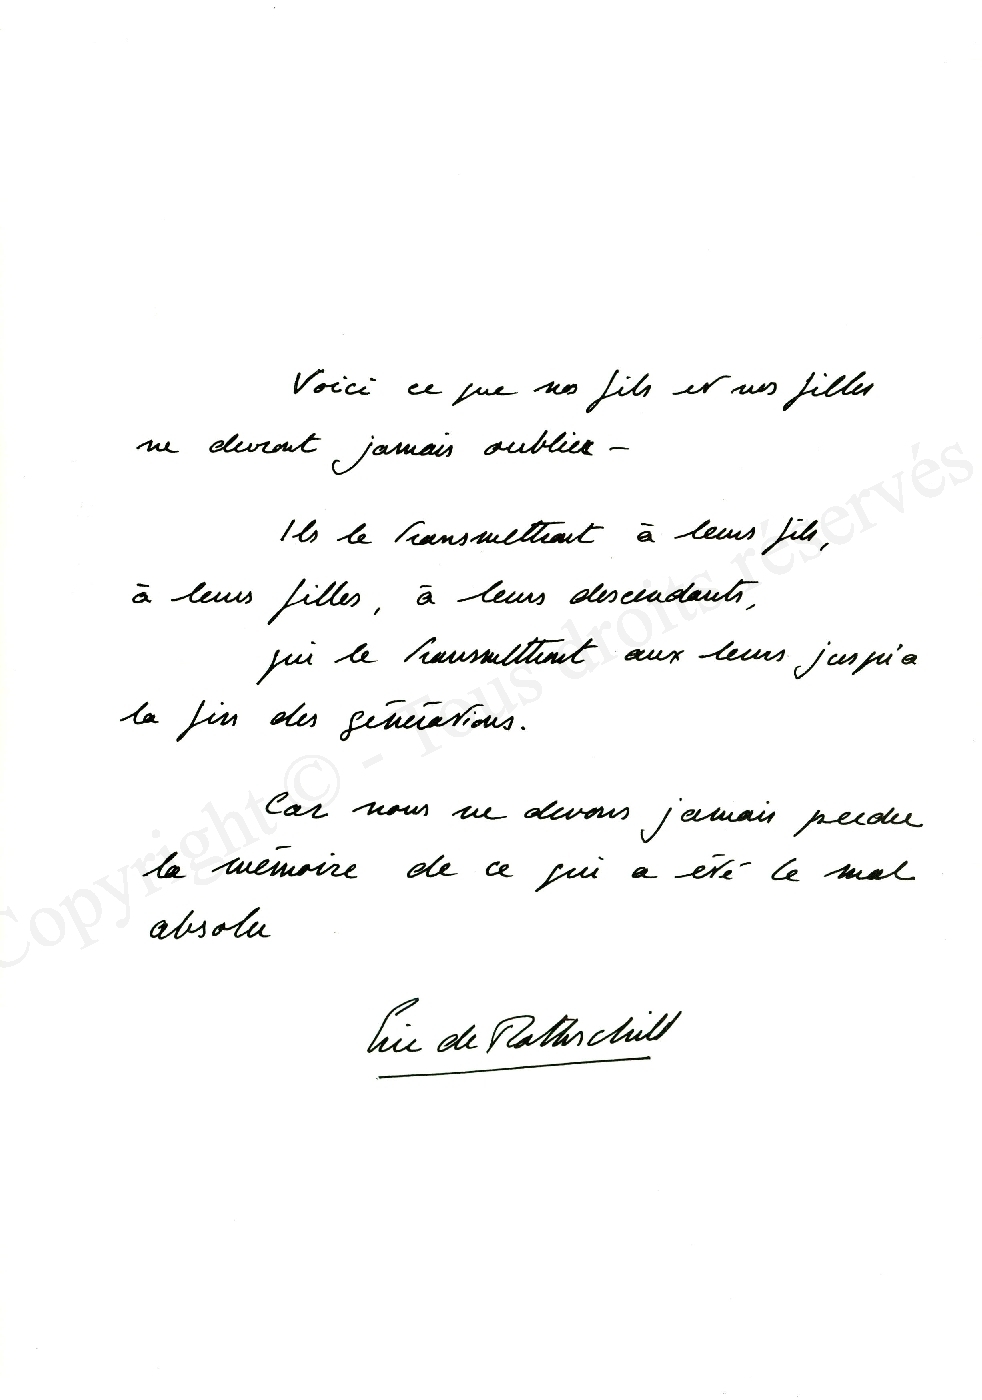 Voici ce que nos fils et nos filles
ne devront jamais oublier –
Ils le transmettront à leurs fils,
à leurs filles, à leurs descendants,
qui le transmettront aux leurs jusqu'à
la fin des générations.
Car nous ne devons jamais perdre
la mémoire de ce qui a été le mal
absolu
Eric de Rothschild
Copyright © - Tous droits réservés